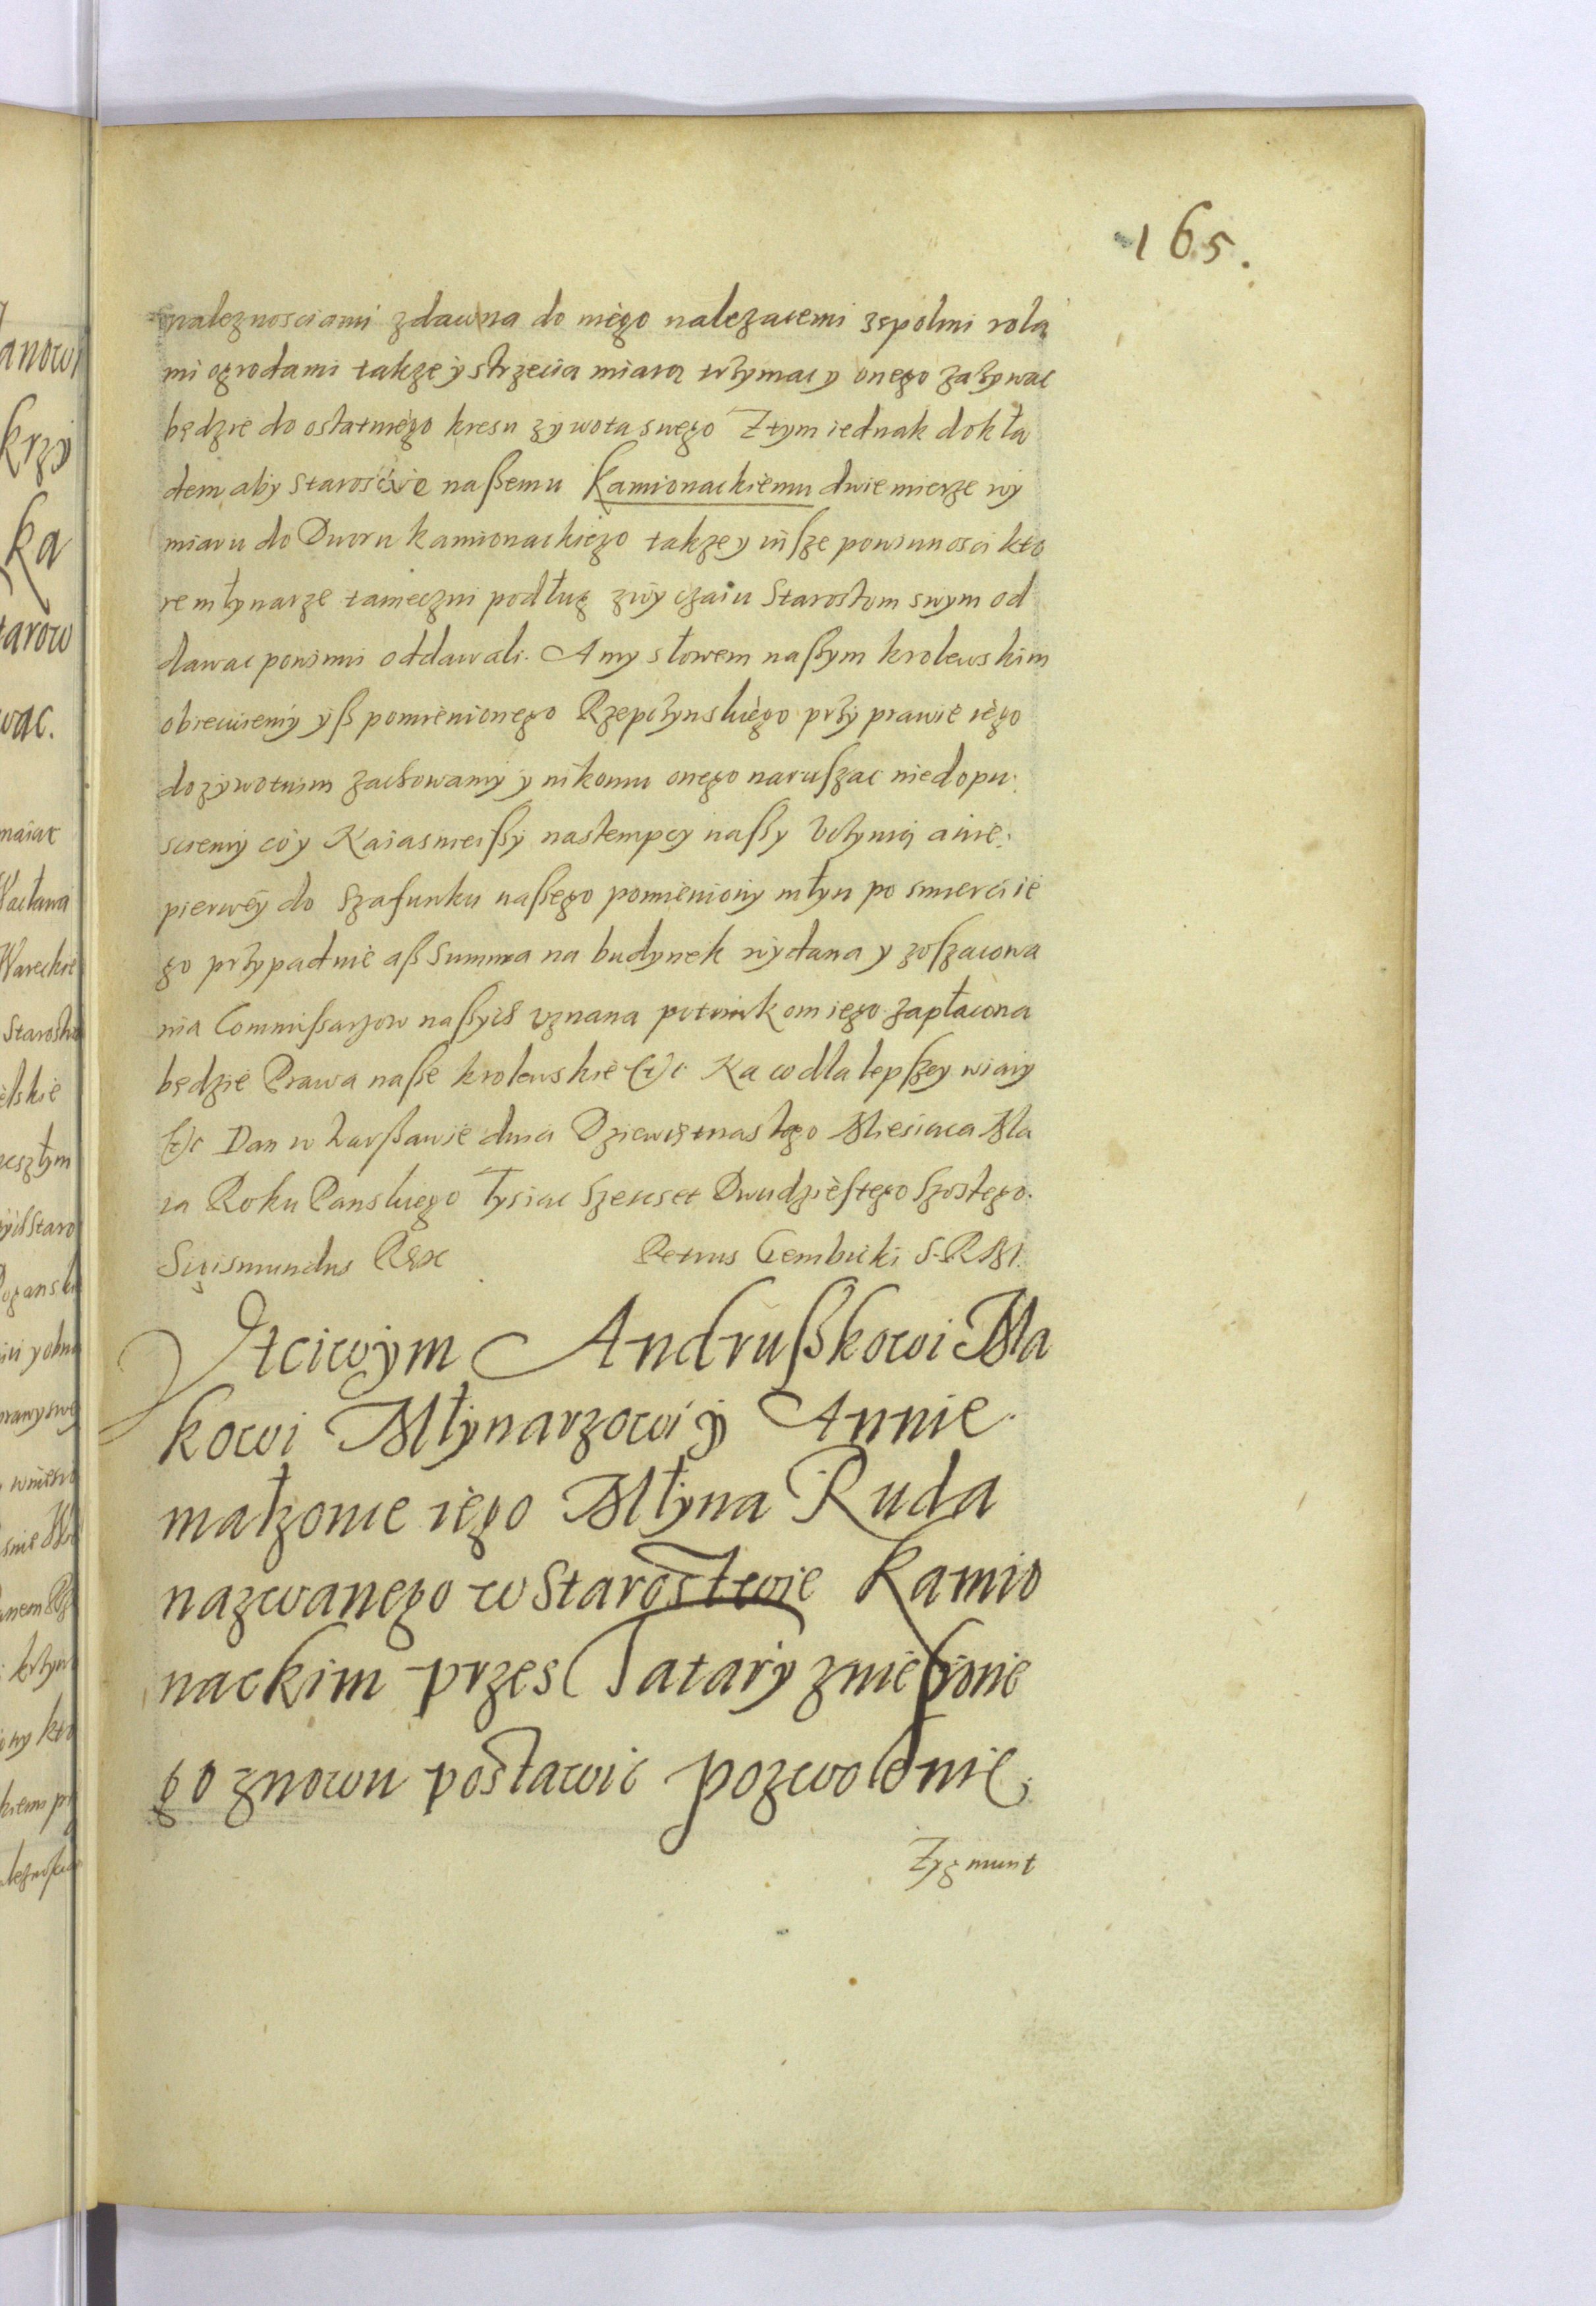 165.
naleznosciami zdawna do niego nalezacemi zspolmi rola
mi ogrodami takze y strzecia miara trzymac y onego zazywac
będzie do ostatniego kresu zywota swego Ztym iednak dokła
dem aby Starosćie naßemu Kamionackiemu dwie mierze wy
miaru do Dworu kamionackiego takze y insze powinnosci kto
re młynarze tameczni podług zwyczaiu Starostom swym od
dawac powinni oddawali. A my słowem naßym krolewskim
obiecuiemy yß pomienionego Rzepczynskiego przy prawie iego
dozywotnim zachowamy y nikomu onego naruszac niedopu
sciemy co y Naiasnieißy nastempcy naßy Vczynią a nie
pierwey do szafunku naßego pomieniony młyn po smierci ie
go przypadnie aß Summa na budynek wydana y zoszacowa
nia Commißarzow naßych vznana potomkom iego zapłacona
będzie Prawa naße krolewskie (et)c Na co dla lepszey wiary
(et)c Dan w Warßawie dnia Dziewiętnastego Miesiaca Ma
ia Roku Panskiego Tysiac Szescset Dwudziestego Szostego.
Sigismundus Rex Petrus Gembicki S. R. M.
Vtciwym Andrußkowi Ma
kowi Młynarzowi y Annie
małzonce iego Młyna Ruda
nazwanego w Starostwie Kamio
nackim przes Tatary znießione
go znowu postawic pozwolenie
Zygmunt